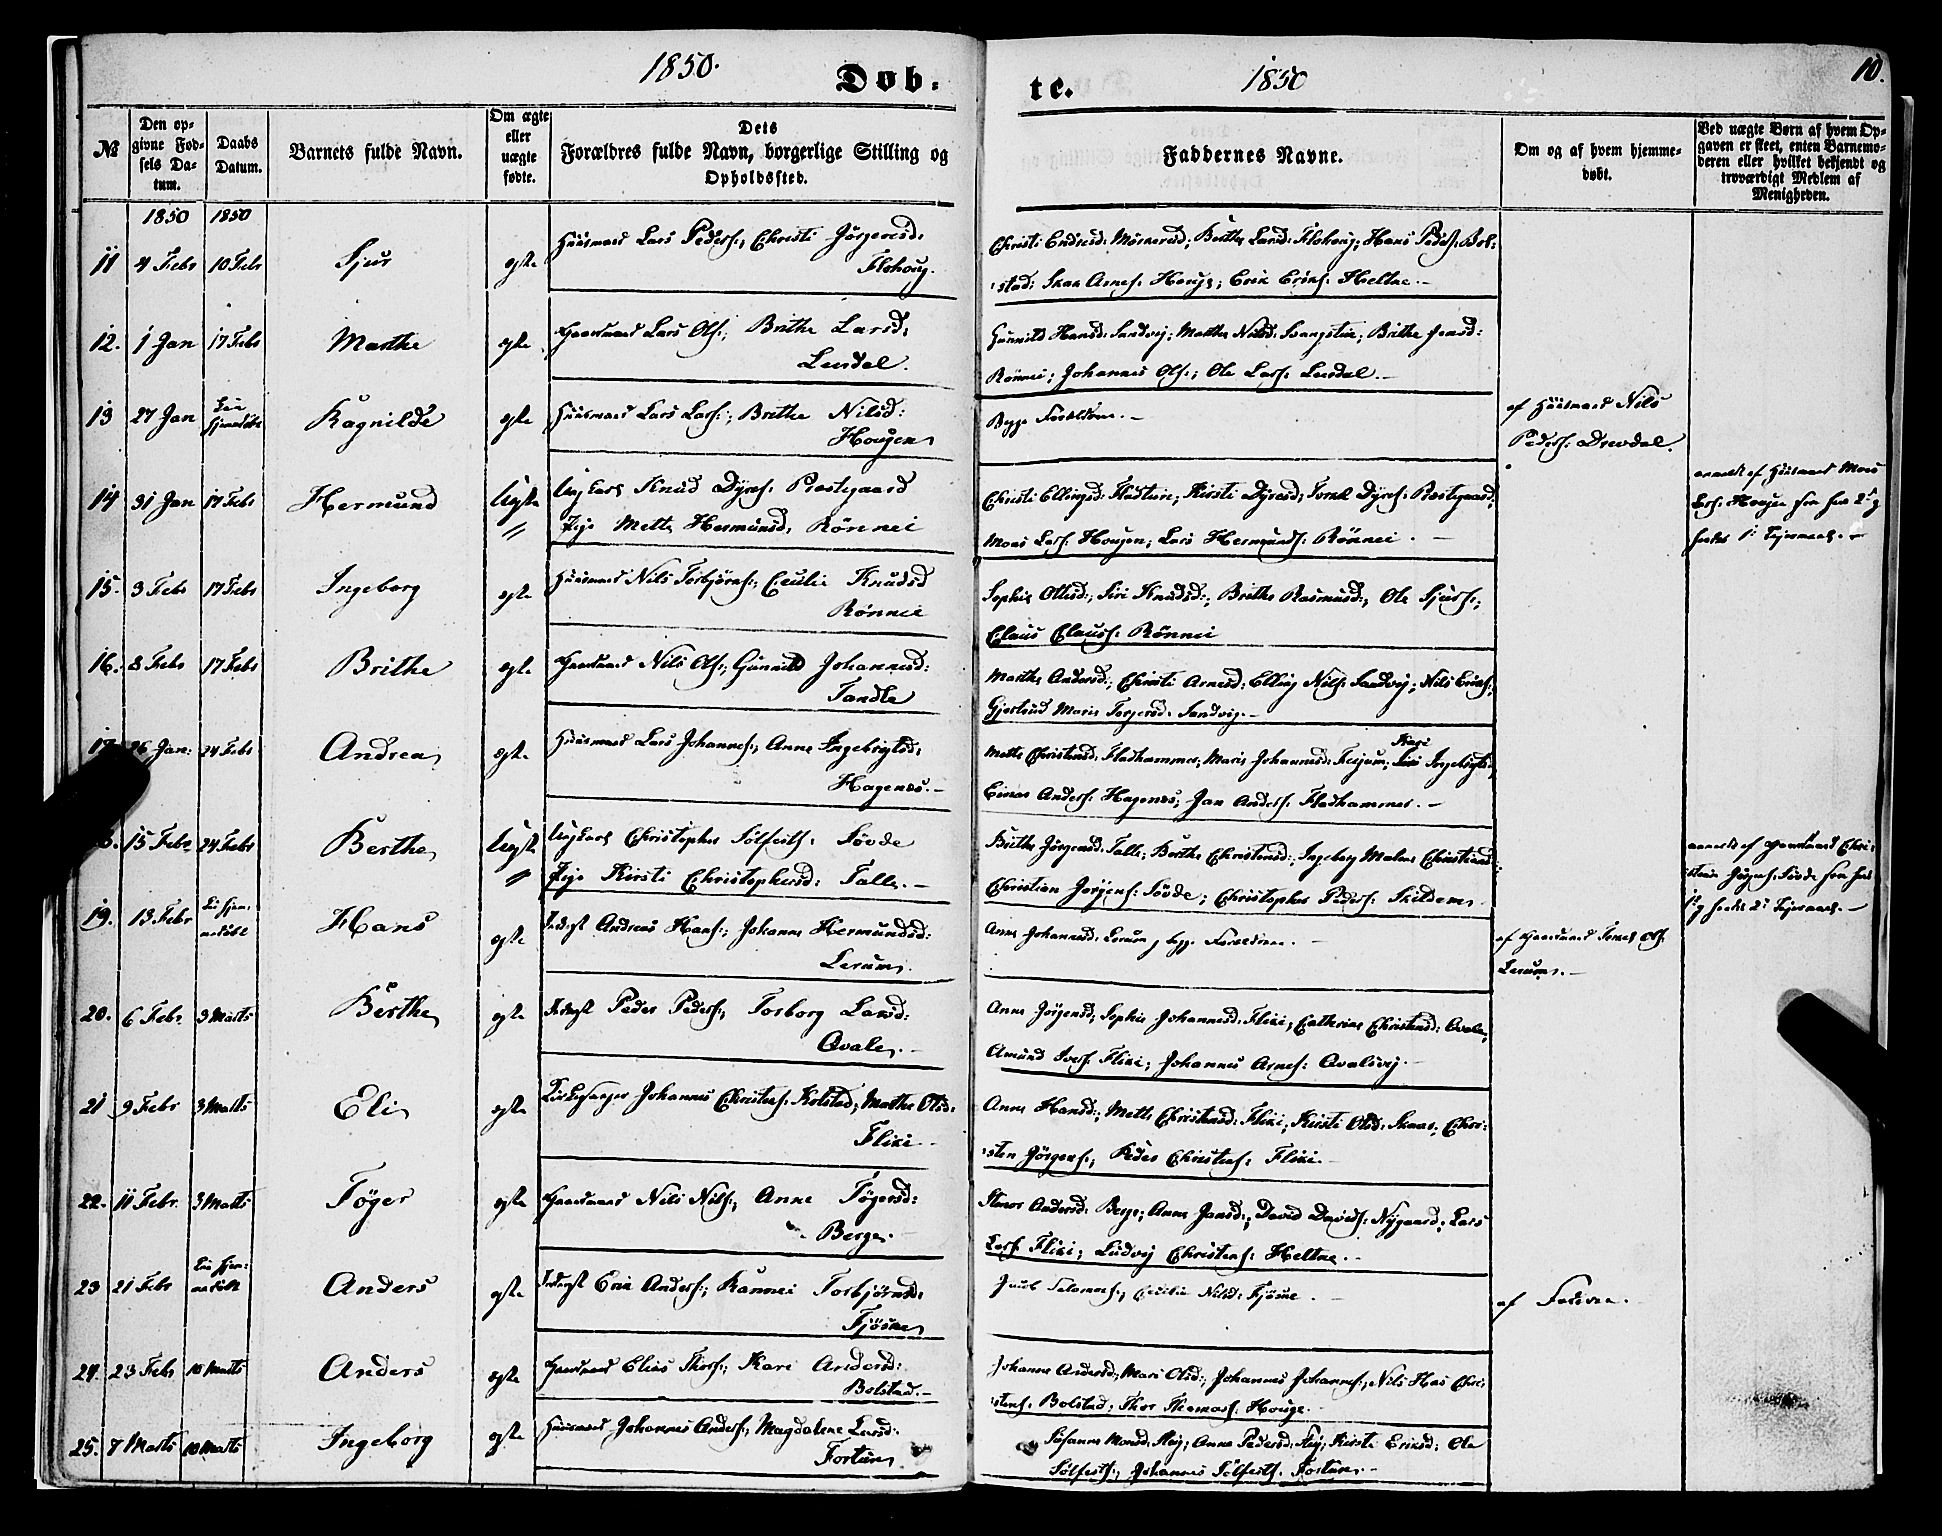 1850. Døb: te. 1850 10.
№
Den opgivne Fødsels Datum.
Daabs Datum.
Barnets fulde Navn.
Om ægte eller uægte fødte.
Dets Forældres fulde Navn, borgerlige Stilling og Opholdssted.
Faddernes Navne.
Om og af hvem hjemmedøbt.
Ved uægte Børn af hvem Opgaven er skeet, enten Barnemoderen eller hvilket bekjendt og troværdigt Medlem af Menigheden.
1850 1850
11 4 Febr 10 Febr Sjur egte Huusmand Lars Peders:, Christi Jørgensd:
Flohoug.
Christi Endresd: Berthe Larsd: Flohoug; Hans Peders: Bol-
stad; Arnes: Houge; Erik Eriks: Heltne.-
12. 1 Jan 17 Febr Marthe egte Gaardmand Lars Ols:, Brithe Larsd:
Lerdal.
Gunnild Hansd: Sandvig; Marthe Nilsd: Brithe Jensd:
Rønnei; Johannes Ols:; Ole Lars: Lerdal.-
13 27 Jan Ei hjemmedøbt Ragnilde egte Huusmand Lars Lars:; Brithe Nilsd:
Hougen
Begge Forældrene.-
af Huusmand Nils
Peders: Drevdal.
14 31 Jan 17 Febr Hermund Uegte Ungkarl Knud Dyres: Præstegaard
Pige Mette Hermunsd: Rønnei
Christi Ellingsd: Kirsti Dyresd; Dyres: Præstegaard;
Mons Lars: Hougen; Lars Hermunds: Rønnei.-
anmeldt af Huusmand Mons
Lars: Hougen for 2d
1st Leiermaal.-
15. 3 Febr 17 Febr Ingeborg egte Huusmand Nils Torbjørns:, Cecilie Knudsd
Rønnei
Sophie Ottesd:; Siri Knudsd:; Brithe Rasmusd:, Ole Sjurs:;
Claus Claus: Rønnei
16. 8 Febr 17 Febr Brithe egte Gaardmand Nils Ols:, Gunnild Johannesd:
Tandle
Marthe Andersd:, Christi Arnesd: Elling Nils: Sandvig; Nils Eriks:,
Gjertrud Marie Torgersd: Sandvig.-
26 Jan: 24 Febr Andrea egte Huusmand Lars Johannes:, Anne Ingebrigtsd:
Hagenes.-
Kari
Mette Christensd: Fladhammer; Maris Johannesd: Fesjum; Ingebrigtsd;
Einar Anders: Hagenes; Jan Anders: Fladhammer.-
15 Febr 24 Febr Berthe Uegte Ungkarl Christopher Sølfests: Søvde
Pige Kirsti Christophersd: Talle.-
Brithe Jørgensd: Talle; Berthe Christensd:, Ingeborg Malene Christiansd:
Christian Jørgens: Søvde; Christopher Peders: Skildem.
anmeldt af Gaardmand Chri-
stian Jørgens: Søvde for
1st 2d Leiermaal.-
19. 13 Febr Ei hjemmedøbt Hans egte Inderst Andreas Hans:, Johanne Hermundsd:
Lerum.
Anne Johannesd: Lerum, begge Forældrene.-
af Gaardmand Ols:
Lerum.-
20. 6 Febr 3 Marts Berthe egte Inderst Peder Peders:, Torborg Larsd:
Qvale.-
Anne Jørgensd; Sophie Johannesd: Flixi, Cathrine Christensd: Qvale,
Amund Ivers: Flixi; Johannes Arnes: Qvalsvig.-
21 9 Febr 3 Marts Eli egte Johannes Christens: Kolstad, Marthe Olsd:
Flixi.-
Anne Hansd:; Mette Christensd: Flixi; Kirsti Olsd: Skaar; Chri-
sten Jørgens:; Peder Christens: Flixi.-
22. 11 Febr. 3 Marts Tøger egte Gaardmand Nils Nils:, Anne Tøgersd:
Berge.
Andersd: Berge; Anne Jansd:; David Davids: Nygaard; Lars
Lars: Flixi; Ludvig Christens: Heltne.-
23 21 Febr Ei hjemmedøbt Anders egte Inderst Erik Anders:, Rannei Torbjørnsd:
Fjøsne
Cecilie Nilsd: Fjøsne.-
af Faderen.
24. 23 Febr 10 Marts Anders egte Gaardmand Elias Thors:, Kari Andersd:
Bolstad.-
Johanne Andersd:, Mari Olsd:, Johannes Johannes:, Nils Has Chri-
stens: Bolstad; Thor Thomas: Houge.
25. 7 Marts 10 Marts Ingeborg egte Huusmand Johannes Anders:, Magdalene Larsd:
Fortun
Susanne Monsd: Anne Pedersd: Kirsti Eriksd: Ole
Sølfests:, Johannes Sølfests: Fortun.-